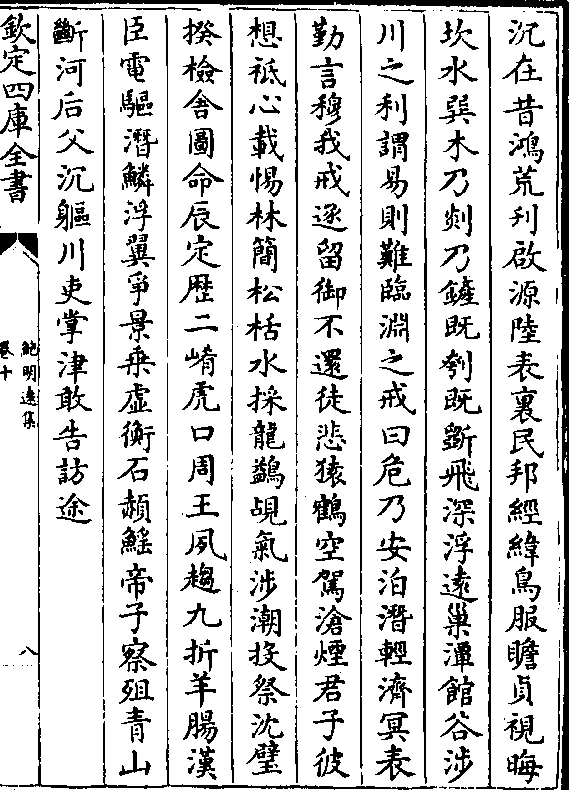 沉在昔鴻荒刋啟源陸表裏民邦經緯鳥服瞻貞視晦
坎水巽木乃剡乃鏟既刳既斵飛深浮遠巢潭館谷涉
川之利謂易則難臨淵之戒曰危乃安泊潛輕濟冥表
勤言穆我戒遂留御不還徒悲猿鶴空駕滄煙君子彼
想祗心載惕林簡松栝水採龍鷁覘氣涉潮投祭沈璧
揆檢舍圖命辰定歷二崤虎口周王夙趨九折羊腸漢
臣電驅潛鱗浮翼爭景乗虛衡石赬鰩帝子察殂青山
斷河后父沉軀川吏掌津敢告訪途
欽定四庫全書
鮑明遠集
卷十
八